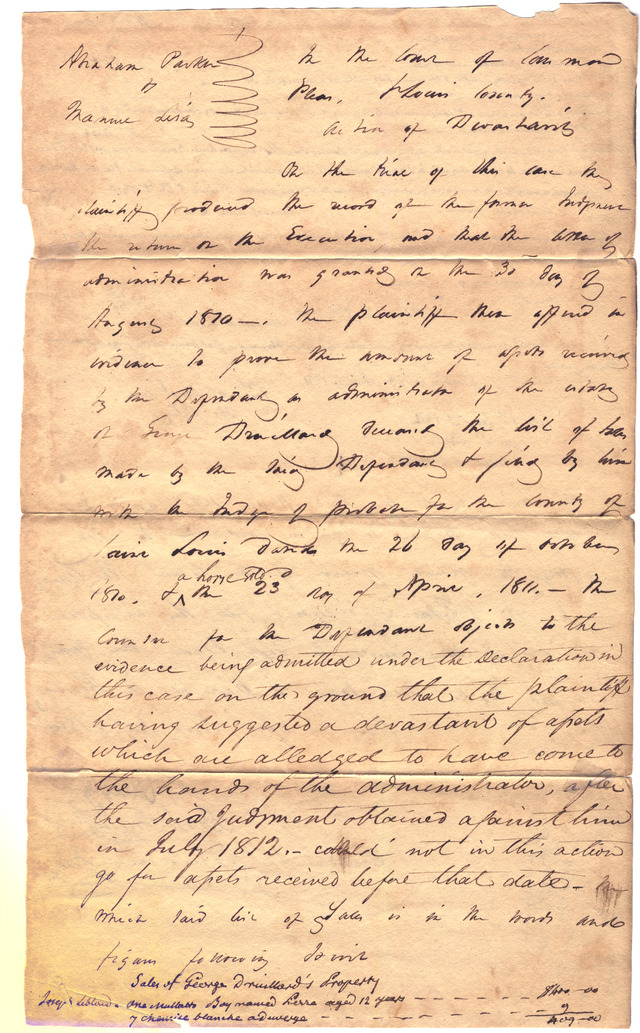 Abraham Parker
v
Manuel Lisa
In the Court of Common
Pleas, St Louis County.
action of Devastavit
On the trial of this case the
plaintiff produced the record of the former Judgment
the return on the Execution, and that the letters of
administration was granted on the 3d day of
August 1810 —. The plaintiff then offered in
evidence to prove the amount of assets received
by the Defendant as administrator of the estate
of George Druillard deceased the list of sales
made by the said Defendant & filed by him
with the Judge of probate for the County of
Saint Louis dated the 26 day of October
1810. & the 23 day of April, 1811. — The
a horse sold
Counsel for the Defendant objects to the
evidence being admitted under the Declaration in
this case on the ground that the plaintiff
having suggested a devastant of assets
which are alledged to have come to
the hands of the administrator, after
the said Judgment obtained against him
in July 1812. — could not in this action
go for assets received before that date —
which said list of Sales is in the words and
figures following to wit
Sales of George Druillard's Property
Joseph Leblond - One Mullatto Boy named Pierre aged 12 years - - - - - $400-00
7 chemise blanche - - - - - 9
409-00